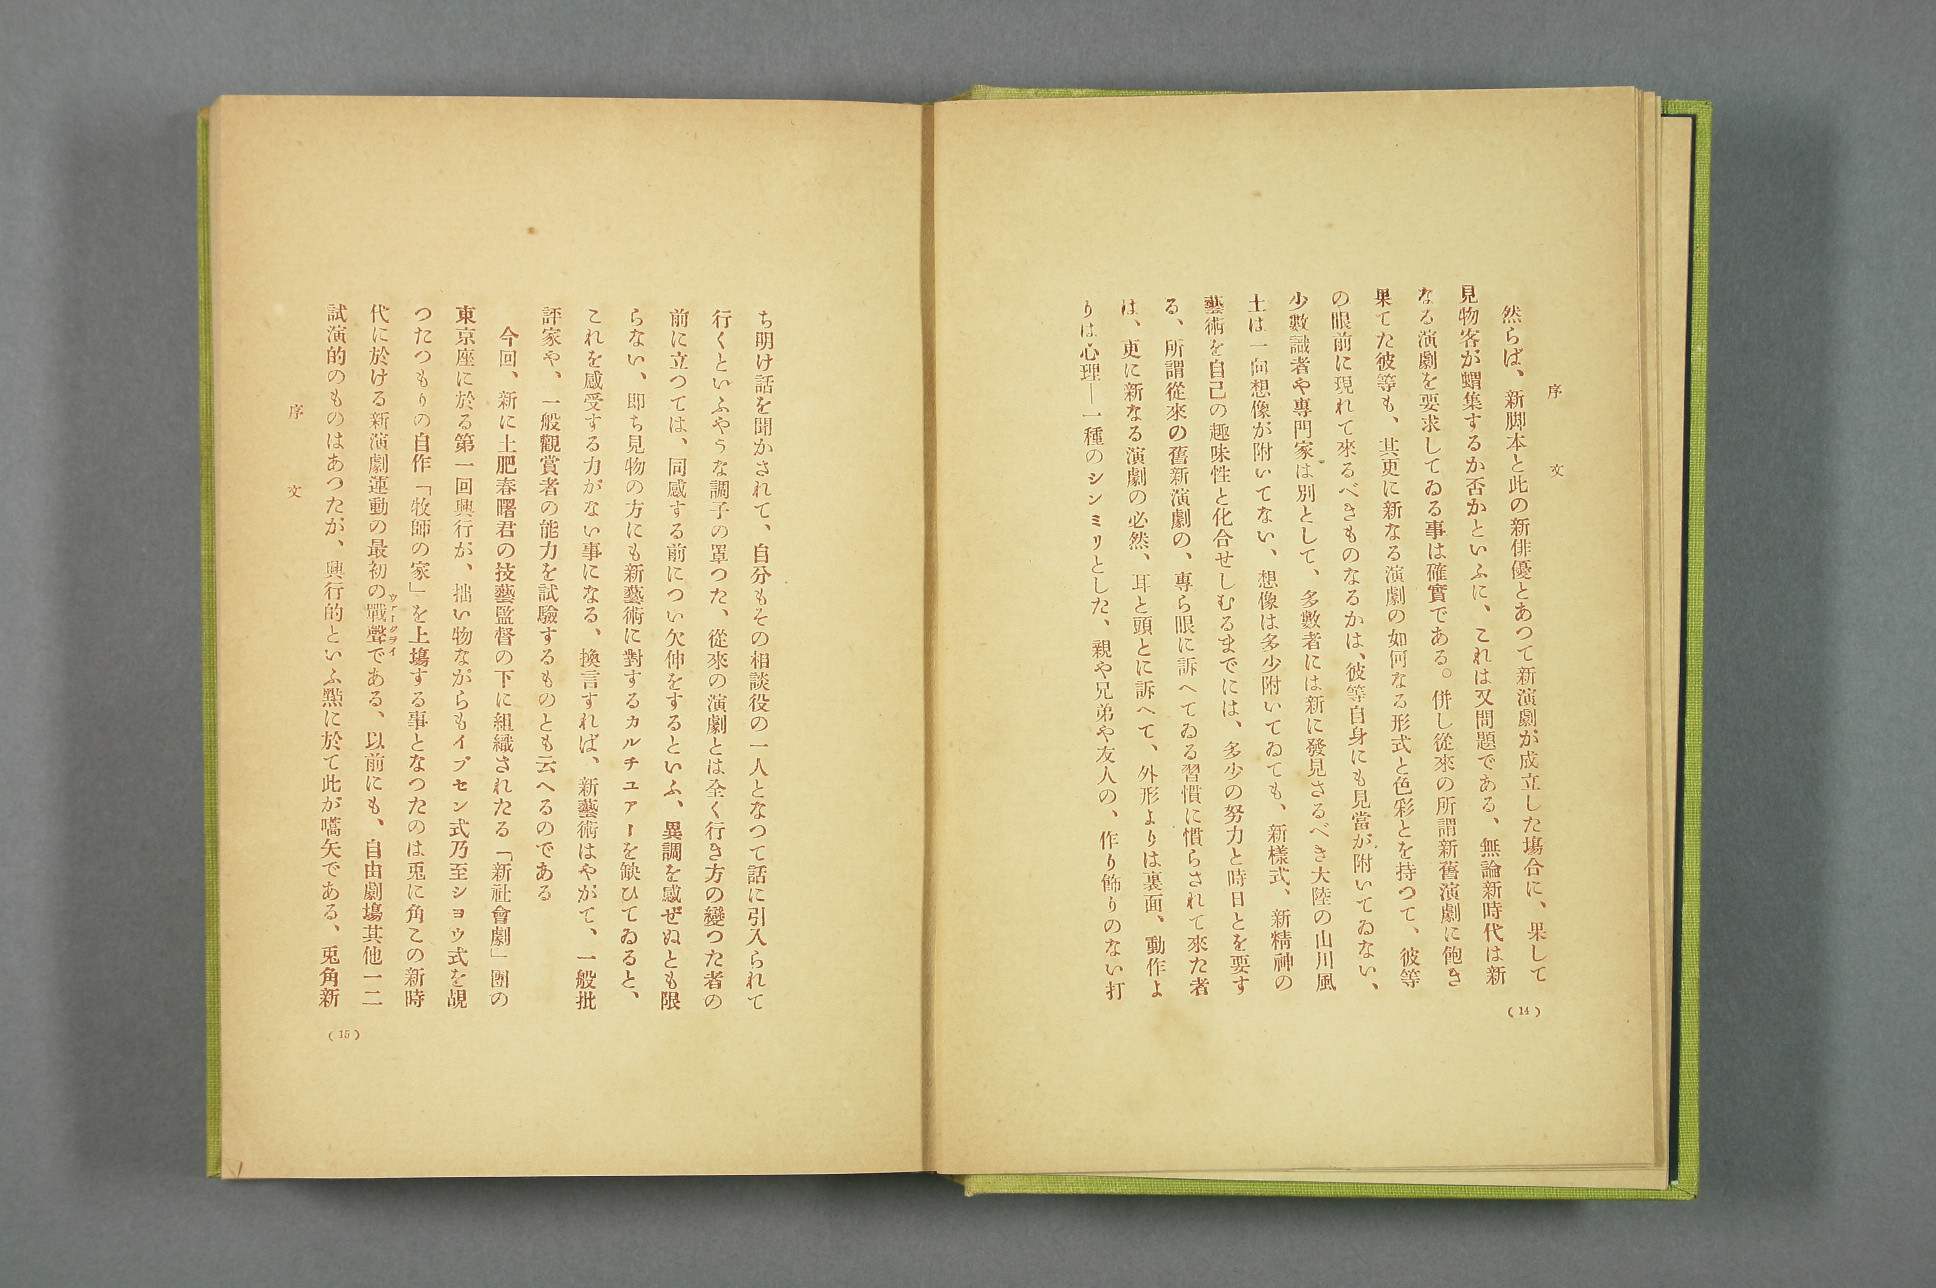 序文
然らば、新脚本と此の新俳優とあつて新演劇が成立した塲合に、果して
見物客が蝟集するか否かといふに、これは又問題である、無論新時代は新
なる演劇を要求してゐる事は確實である。併し從來の所謂新舊演劇に飽き
果てた彼等も、其更に新なる演劇の如何なる形式と色彩とを持つて、彼等
の眼前に現れて來るべきものなるかは、彼等自身にも見當が附いてゐない、
少數識者や專門家は別として、多數者には新に發見さるべき大陸の山川風
土は一向想像が附いてない、想像は多少附いてゐても、新樣式、新精神の
藝術を自己の趣味性と化合せしむるまでには、多少の努力と時日とを要す
る、所謂從來の舊新演劇の、專ら眼に訴へてゐる習慣に慣らされて來た者
は、更に新なる演劇の必然、耳と頭とに訴へて、外形よりは裏面、動作よ
りは心理―一種のシンミリとした、親や兄弟や友人の、作り飾りのない打
(14)
ち明け話を聞かされて、自分もその相談役の一人となつて話に引入られて
行くといふやうな調子の罩つた、從來の演劇とは全く行き方の變つた者の
前に立つては、同感する前につい欠伸をするといふ、異調を感ぜぬとも限
らない、即ち見物の方にも新藝術に對するカルチユアーを缺ひてゐると、
これを感受する力がない事になる、換言すれば、新藝術はやがて、一般批
評家や、一般觀賞者の能力を試驗するものとも云へるのである
今回、新に土肥春曙君の技藝監督の下に組織されたる「新社會劇」團の
東京座に於る第一回興行が、拙い物ながらもイブセン式乃至シヨウ式を覘
つたつもりの自作「牧師の家」を上塲する事となつたのは兎に角この新時
代に於ける新演劇運動の最初の戰聲である、以前にも、自由劇塲其他一二
ウオークライ
試演的のものはあつたが、興行的といふ點に於て此が嚆矢である、兎角新
序文
(15)